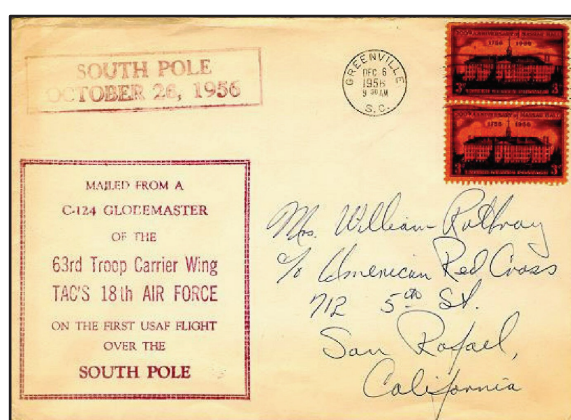 SOUTH POLE
OCTOBER 26, 1956
GREENVILLE
DEC 6
1956
S.C.
200TH ANNIVERSARY of NASSAU HALL
1756 1956
3¢ 3¢
200TH ANNIVERSARY of NASSAU HALL
1756 1956
3¢ 3¢
MAILED FROM A
C-124 GLOBEMASTER
OF THE
63rd Troop Carrier Wing
TAC'S 18th AIR FORCE
ON THE FIRST USAF FLIGHT
OVER THE
SOUTH POLE
Mrs. William
c/o American Red Cross
712 5th St.
San Rafael,
California